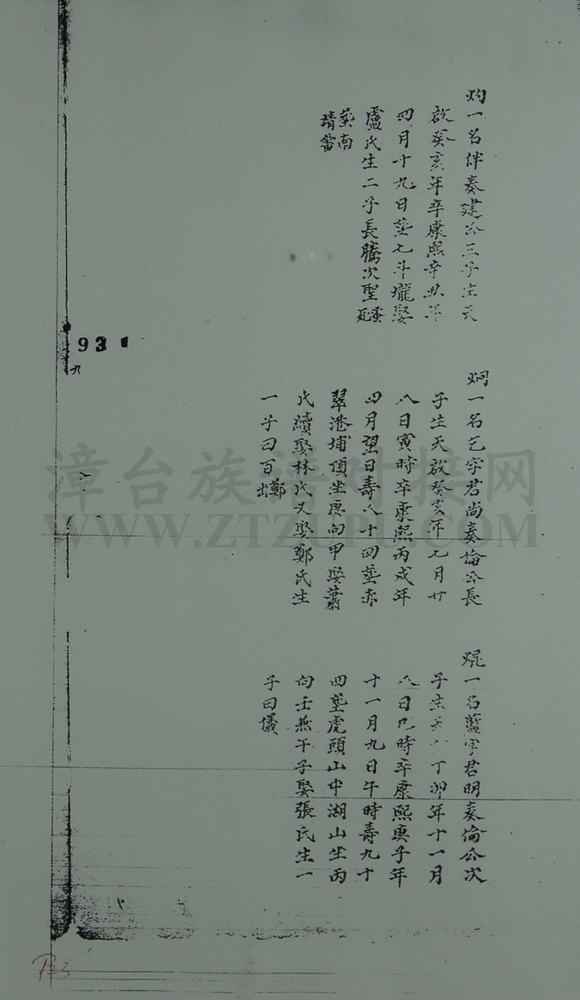 灼一名伴奏建公三子生天
啟癸亥年卒康熙辛丑年
四月十九日塟七斗壠娶
盧氏生二子長騰次聖
塟南
靖
931
九
炯一名乞字君尚奏倫公長
子生天啟癸亥年七月廿
八日寅時卒康熙丙戌年
四月望日壽八十四塟赤
翠港埔頂坐庚向甲娶蕭
氏續娶林氏又娶鄭氏生
一子曰百鄭出
焜一名藍字君明奏倫公次
子生天丁卯年十一月
八日時卒康熙庚子年
十一月九日午時壽九十
四塟虎頭山中湖山坐丙
向壬兼午子娶張氏生一
子曰儀
漳台族谱对接网
WWW.ZTZUPU.COM